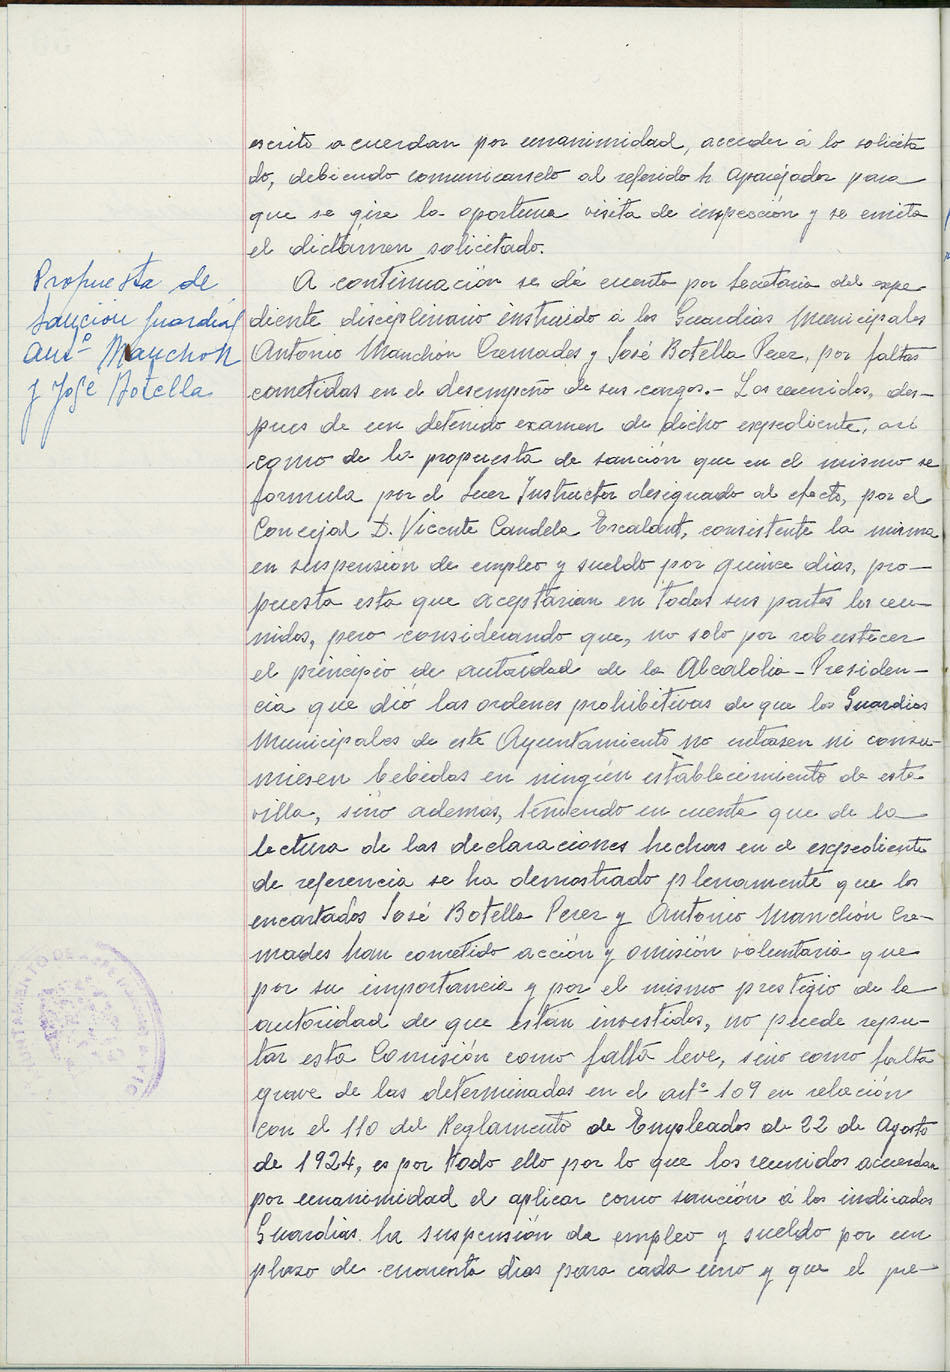 escrito acuerdan por unanimidad, acceder á lo solicita
do, debiendo comunicarselo al referido Sr. Aparejador para
que se gire la oportuna visita de inspección y se emita
el dictámen solicitado.
Propuesta de
Sanción Guardias
Antº Manchón
y José Botella
A continuación se dá cuenta por Secretaria del expe-
diente disciplinario instruido á los Guardias Municipales
Antonio Manchón Cremades y José Botella Perez, por faltas
cometidas en el desempeño de sus cargos.- Los reunidos, des-
pues de un detenido examen de dicho expediente, así
como de la propuesta de sanción que en el mismo se
formula por el Juez Instructor designado al efecto, por el
Concejal D. Vicente Candela Escalant, consistente la misma
en suspensión de empleo y sueldo por quince dias, pro-
puesta esta que aceptarian en todas sus partes los reu-
nidos, pero considerando que, no solo por robustecer
el principio de autoridad de la Alcaldia-Presiden-
cia que dió las ordenes prohibitivas de que los Guardias
Municipales de este Ayuntamiento no entrasen ni consu-
miesen bebidas en ningún establecimiento de esta
villa, sino además, teniendo en cuenta que de la
lectura de las declaraciones hechas en el expediente
de referencia se ha demostrado plenamente que los
encartados José Botella Perez y Antonio Manchón Cre-
mades han cometido acción y omisión voluntaria que
por su importancia y por el mismo prestigio de la
autoridad de que están investidos, no puede repu-
tar esta Comisión como falta leve, sino como falta
grave de las determinadas en el artº 109 en relación
con el 110 del Reglamento de Empleados de 22 de Agosto
de 1924, es por todo ello por lo que los reunidos acuerdan
por unanimidad el aplicar como sanción á los indicados
Guardias la suspensión de empleo y sueldo por un
plazo de cuarenta dias para cada uno y que el pre-
AYUNTAMIENTO DE